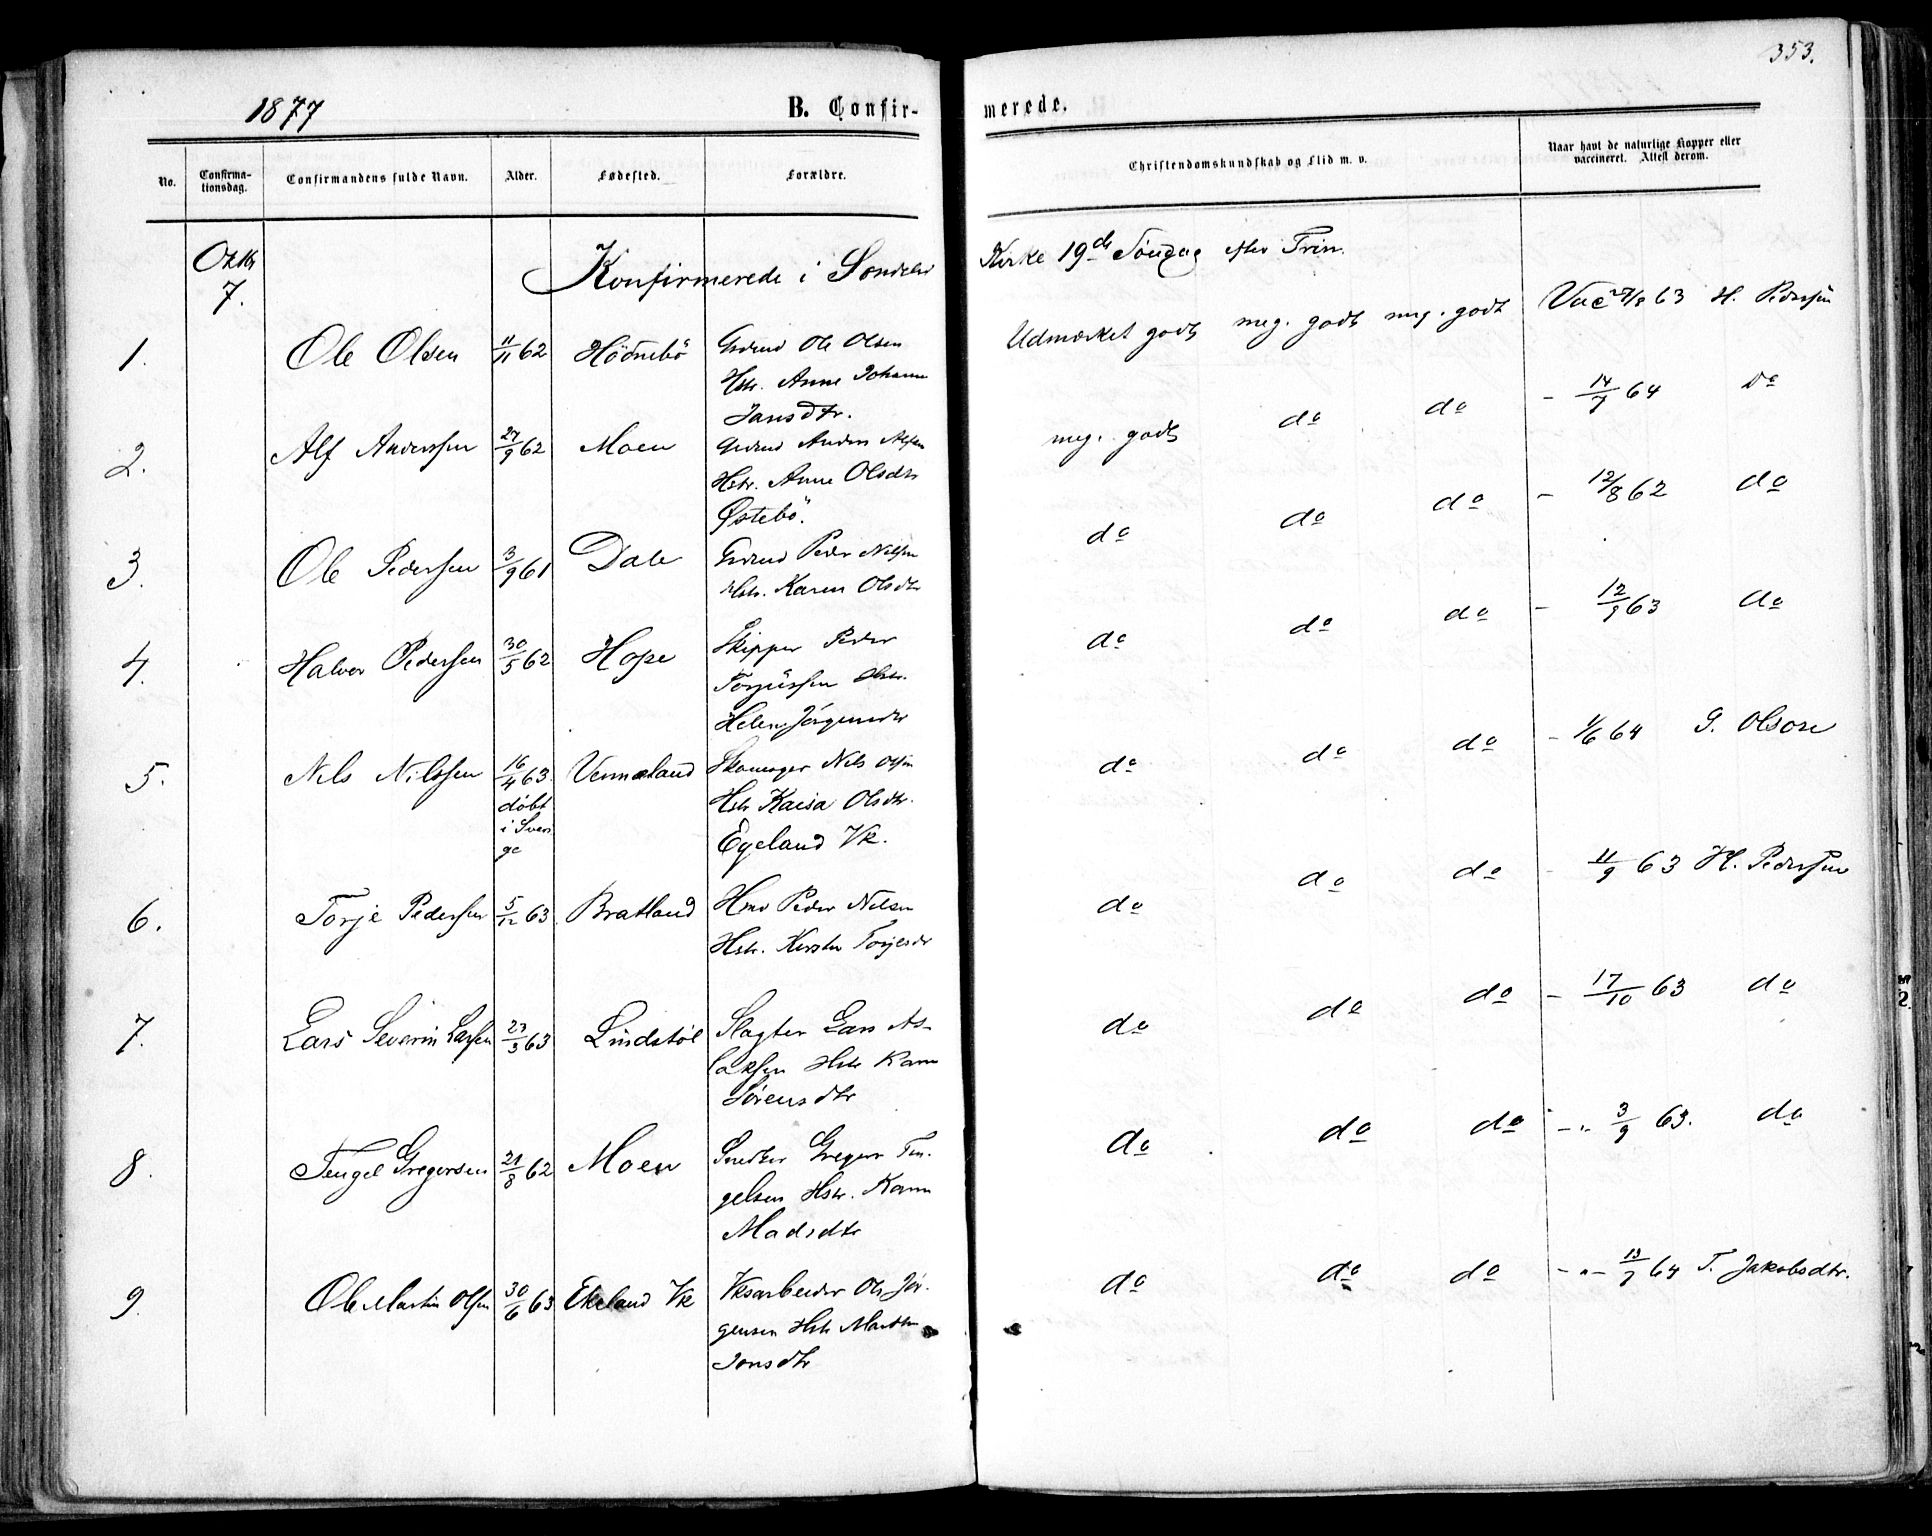 353.
1877 B. Confir-
merede.
No. Confirma-tionsdag. Confirmandens fulde Navn. Alder. Fødested. Forældre. Christendomskundskab og Flid m. v. Naar havt de naturlige Kopper eller vaccineret. Attest derom.
Oktbr 7. Konfirmerede i Søndeled Kirke 19de Søndag efter Trin.
1. Ole Olsen 11/11 62 Hödnebö Grdmd Ole Olsen Udmærket godt meg. godt meg. godt Vac 27/8 63 H. Pedersen
Hstr. Anne Johanne
Jansdtr.
2. Alf Anderssen 27/9 62 Moen Grdmd Anders Alfsen meg. godt do do - 14/7 64 do
Hstr. Anne Olsdtr
Østebö.
3. Ole Pederssen 3/9 61 Dale Grdmd Peder Nilsen do do do - 12/8 62 do
Hstr. Karen Olsdtr
4. Halvor Pederssen 30/5 62 Hope Skipper Peder do do do - 12/9 63 do
Torjussen Hstr.
Helene Jörgensdtr
5. Nils Nilssen 16/4 63 Vermeland Skomager Nils Olsen do do do - 1/6 64 G. Olsson
döbt Hstr Kaisa Olsdtr.
i Sveri Egeland Vk.
ge
6. Torje Pederssen 5/12 63 Bratland Hmd Peder Nilsen do do do - 11/9 63 H. Pederssen
Hstr. Kirsten Torjesdtr
7. Lars Severin Larssen 23/3 63 Lindstøl Slagter Lars As- do do do - 17/10 63 do
laksen Hstr Karen
Sörensdtr
8. Tengel Gregersen 21/8 62 Moen Snedker Greger Ten- do do do - " 3/9 63. do
gelsen Hstr. Karen
Madsdtr
9. Ole Martin Olsen 30/6 63 Ekeland Vk Vksarbeider Ole Jör- do do do - " - 13/7 64 T. Jakobsdtr.
gensen Hstr Marthe
Jonsdtr